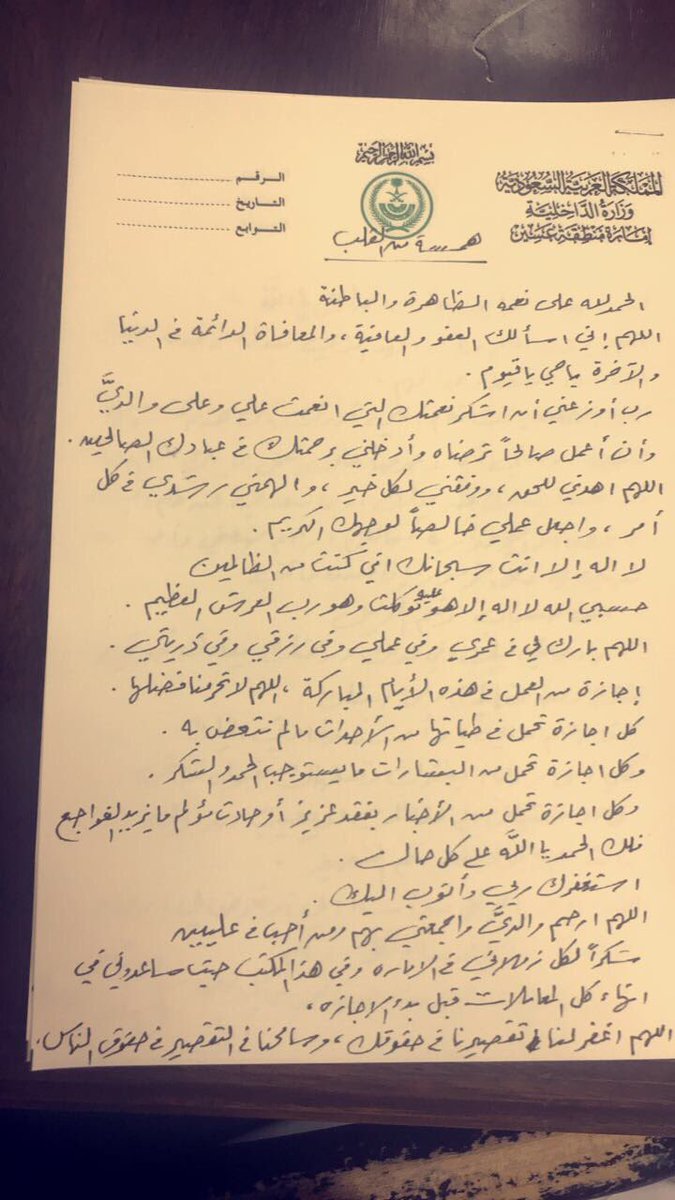 بسم الله الرحمن الرحيم
المملكة العربية السعودية
وزارة الداخلية
إمارة منطقة عسير
الرقم
التاريخ
التوابع
همسة من القلب
الحمدلله على نعمه الظاهرة والباطنة
اللهم إني اسألك العفو والعافية، والمعافاة الدائمة في الدنيا
والآخرة ياحي ياقيوم.
رب أوزعني أن اشكر نعمتك التي انعمت علي وعلى والديَّ
وأن أعمل صالحاً ترضاه وأدخلني برحمتك في عبادك الصالحين.
اللهم اهدني للحق، ووفقني لكل خير، والهمني رشدي في كل
أمر، واجعل عملي خالصاً لوجهك الكريم.
لا اله إلا انت سبحانك اني كنت من الظالمين
حسبي الله لا اله إلا هو عليه توكلت وهو رب العرش العظيم.
اللهم بارك لي في عمري وفي عملي وفي رزقي وفي ذريتي.
إجازة من العمل في هذه الأيام المباركة، اللهم لا تحرمنا فضلها.
كل اجازة تحمل في طياتها من الأحداث مالم نتعض به.
وكل اجازة تحمل من البشارات ما يستوجب الحمد والشكر.
وكل اجازة تحمل من الأخبار بفقد عزيز أو حادث مؤلم ما يزيد الفواجع
فلك الحمد يا اللَّه على كل حال.
استغفرك ربي وأتوب اليك.
اللهم ارحم والديَّ واجمعني بهم ومن أحب في عليين
شكراً لكل زملائي في الاماره وفي هذا المكتب حيث ساعدوني في
انهاء كل المعاملات قبل بدء الاجازه،
اللهم اغفر لنا تقصيرنا في حقوقك، وسامحنا في التقصير في حقوق الناس.